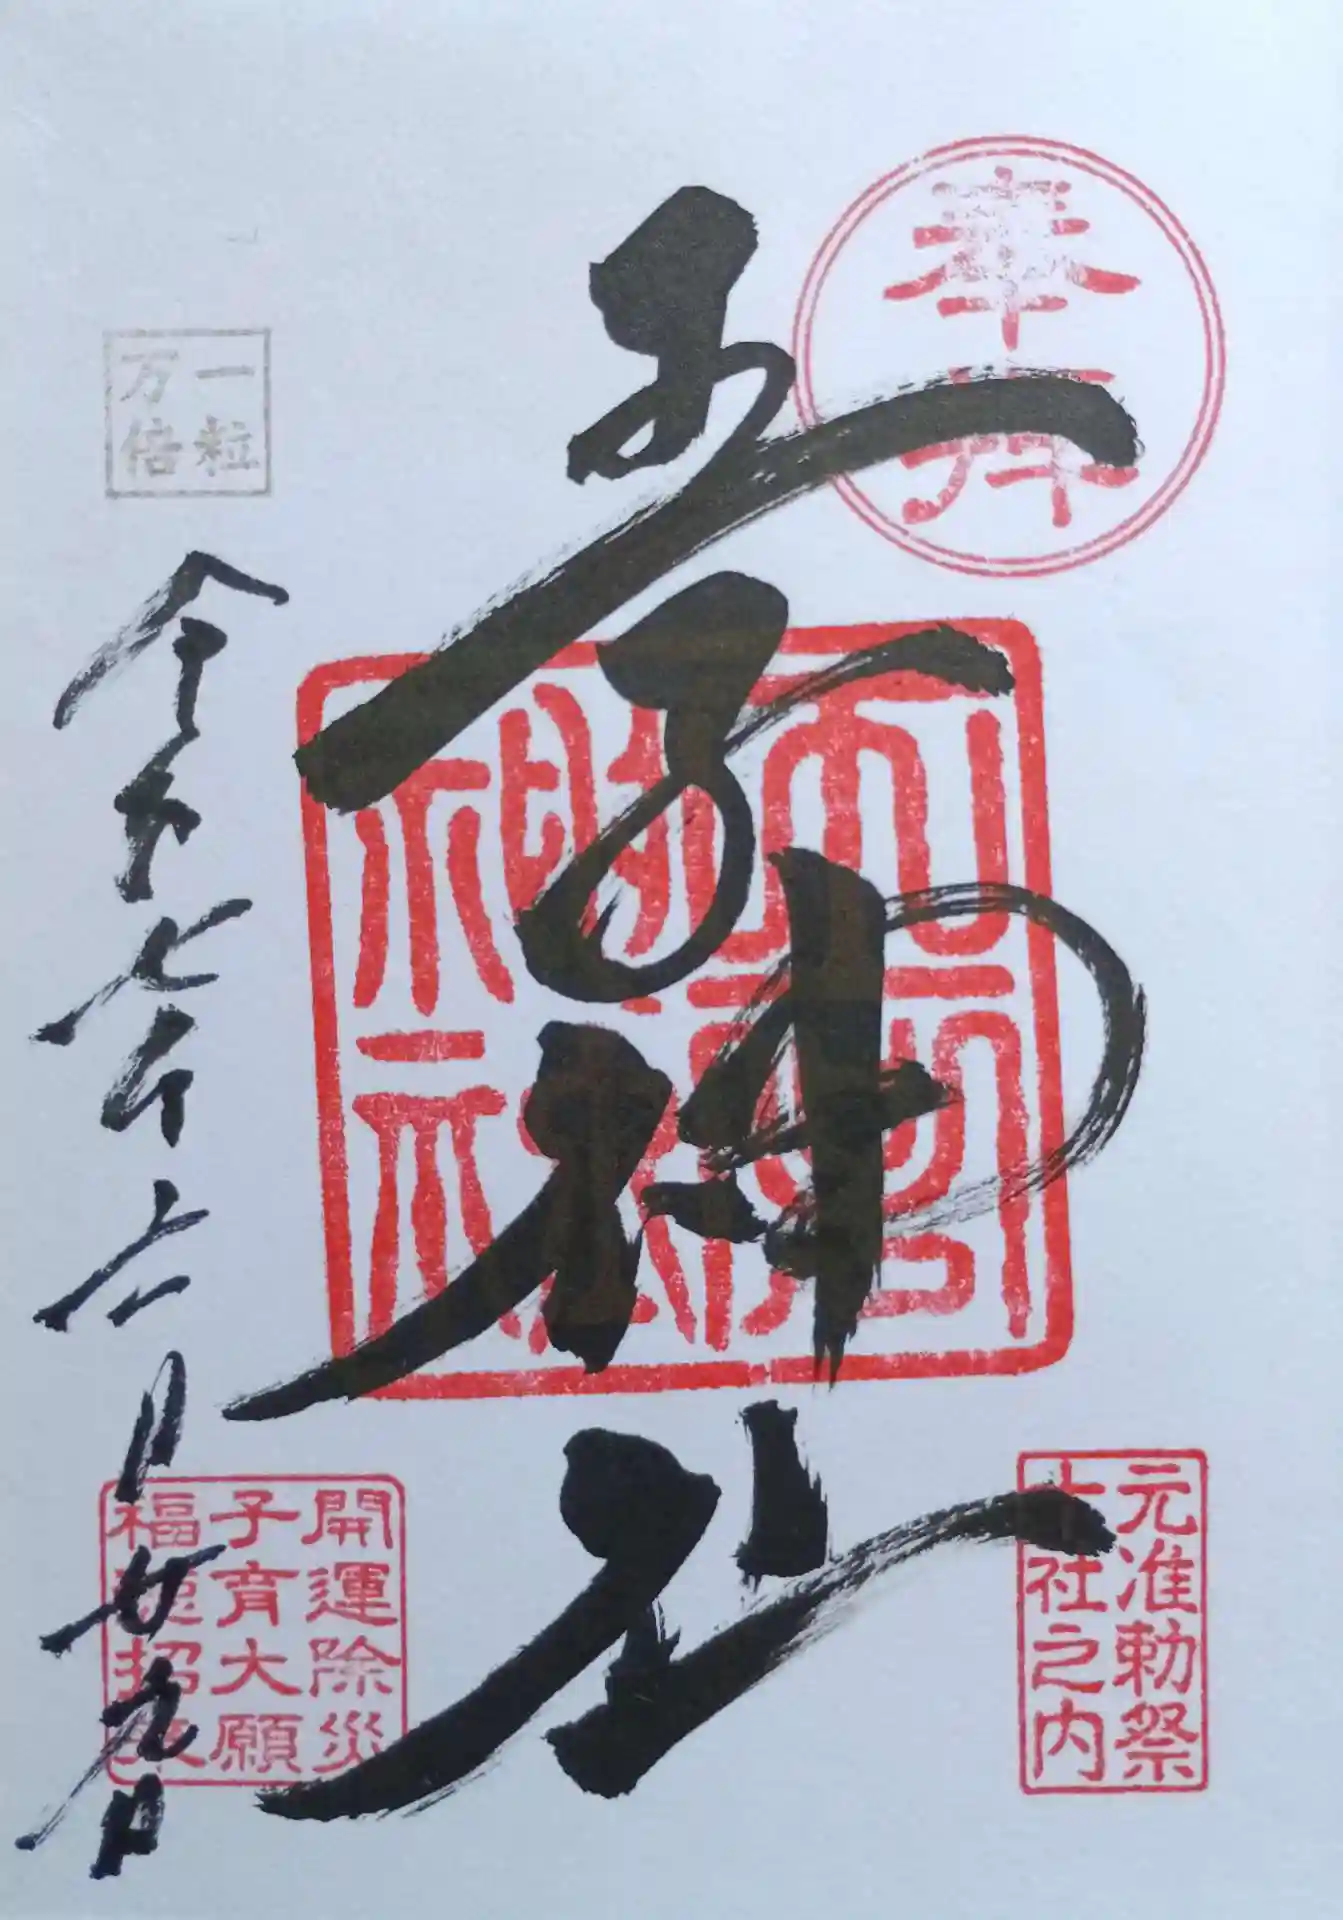 奉拝
元准勅祭
十社之内
王子神社
一粒
万倍
令和七年六月廿九日
開運除災
子育大願
福徳招来